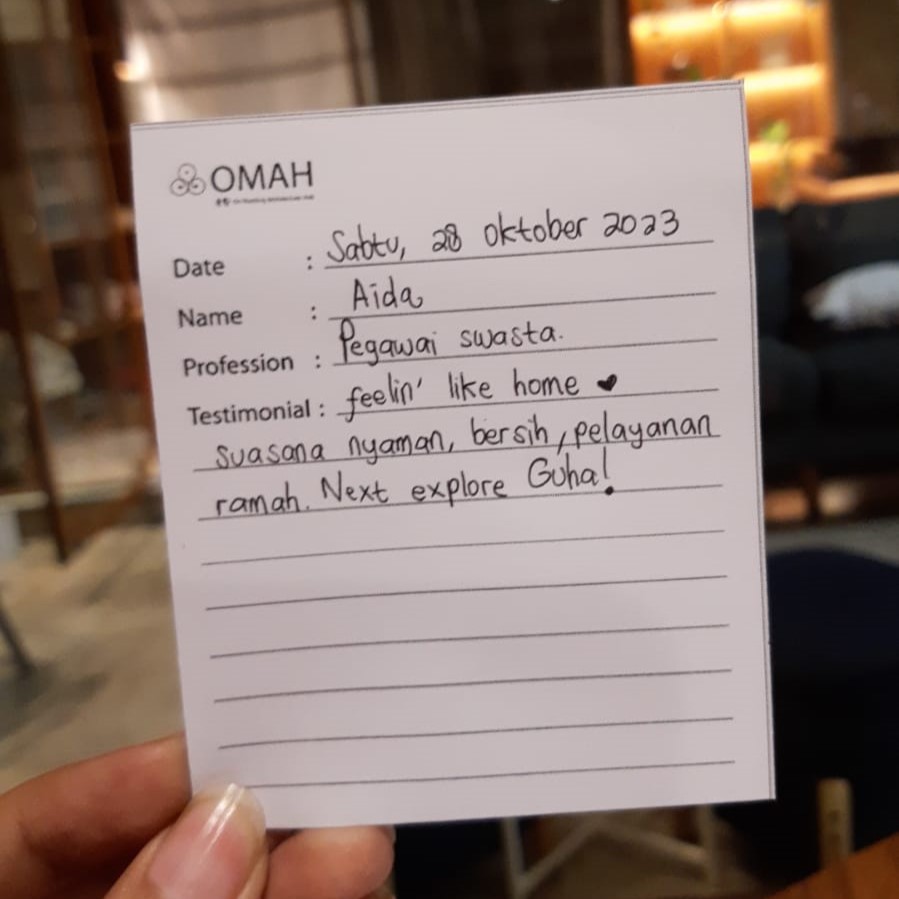 OMAH
Date : Sabtu, 28 Oktober 2023
Name : Aida
Profession : Pegawai swasta.
Testimonial : feelin' like home ♥
suasana nyaman, bersih, pelayanan
ramah. Next explore Guha!